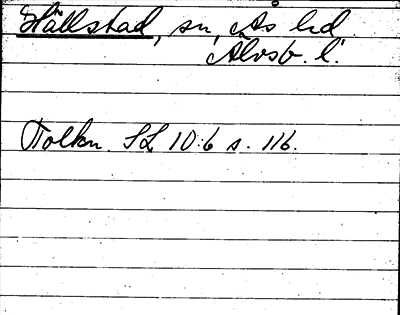 Hällstad, sn, Ås hd
Älvsb. l.
Tolkn. SL 10:6 s. 116.